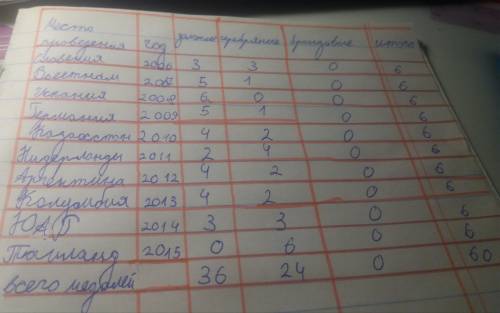 Место
проведения год золотые серебряные бронзовые итого
Словения 2006 3 3 0 6
Вьетнам 2007 5 1 0 6
Испания 2008 6 0 0 6
Германия 2009 5 1 0 6
Казахстан 2010 4 2 0 6
Нидерланды 2011 2 4 0 6
Аргентина 2012 4 2 0 6
Колумбия 2013 4 2 0 6
ЮАР 2014 3 3 0 6
Таиланд 2015 0 6 0 6
всего медалей 36 24 0 60